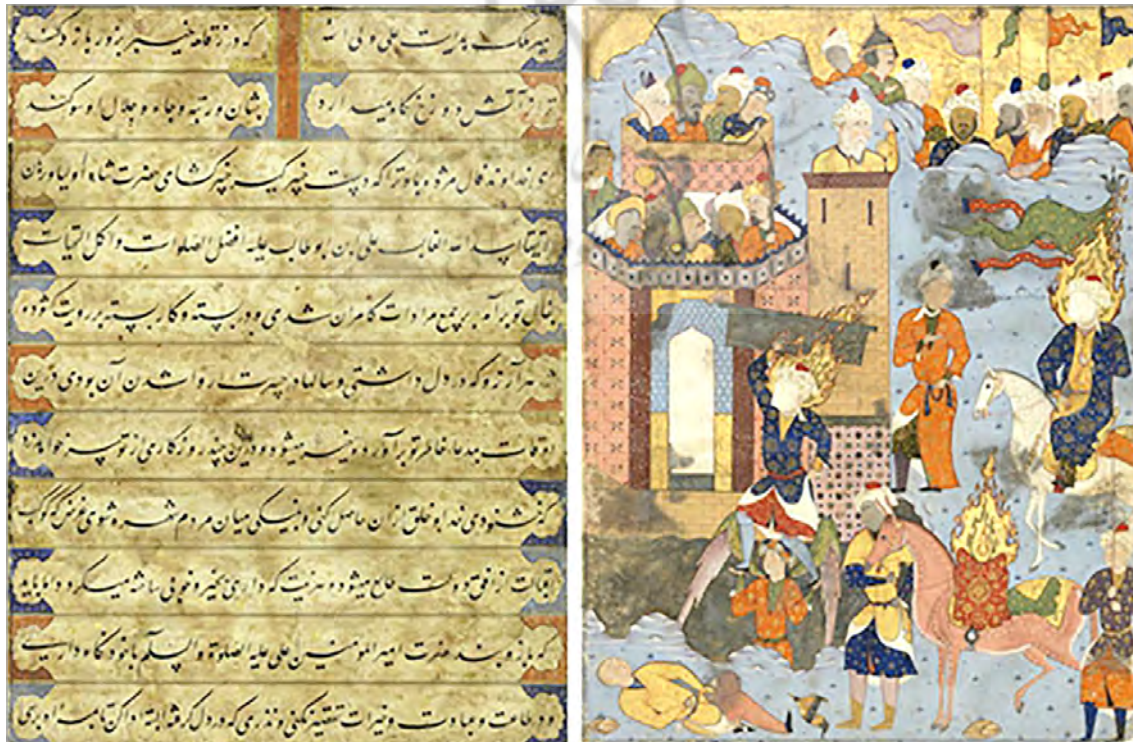 سپهر ملک هدایت علی ولی الله که در ز قلعه خیبر بزور بازو کند
ترا ز آتش دوزخ نگاه میدارد بشان و رتبه و جاه و جلال او سوکند
ای خداوند فال مژده باد ترا که دست خیبر کشای حضرت شاه اولیا و
اسد الله الغالب علی ابن ابو طالب علیه افضل الصلوات و اکمل التحیات
بفال تو برآمد بر جمیع مرادات کامران شدی و در بسته و کار بسته بر رویت کشوده
هر آرزو که در دل داشتی و سالها در حسرت روا شدن آن بودی درین
اوقات بمدعا خاطر تو برآورده میشود و درین چند روز کاری از تو سر خواهد زد
که خشنودی خدا و خلق از آن حاصل کنی و به نیکی میان مردم شوی غرض که کوکب
از افق دولت طالع میشود و عزیمت که داری بخیر و خوبی ساخته میکردد اما باید
که بازوبند حضرت امیر المومنین علی علیه الصلوة و السلم با خود نگاه داری
و در طاعت و عبادت و خیرات تقصیر نکنی و نذری که در دل گرفته البته ادا کن تا بمراد برسی